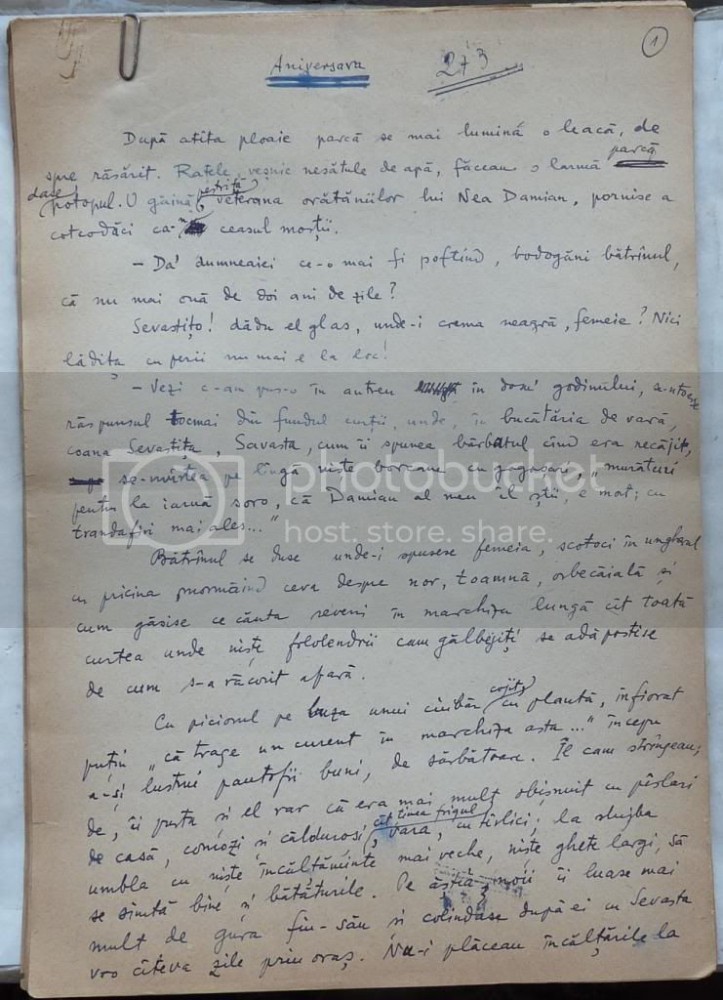 1
Aniversara
273
După atîta ploaie parcă se mai lumină o leacă, de
spre răsărit. Rațele, veșnic nesătule de apă, făceau o larmă parcă
dase potopul. O găină pestriță, veterana orătăniilor lui Nea Damian, pornise a
cotcodăci ca ceasul morții.
– Da' dumneaiei ce-o mai fi poftind, bodogăni bătrînul,
că nu mai ouă de doi ani de zile?
Sevastițo! dădu el glas, unde-i crema neagră, femeie? Nici
lădița cu perii nu mai e la loc!
– Vezi c-am pus-o în antreu în dosu' godinului,
răspunsul tocmai din fundul curții, unde, în bucătăria de vară,
coana Sevastița, Savasta, cum îi spunea bărbatul cînd era necăjit,
se-nvîrtea pe lîngă niște borcane cu gogoșari, "murături
pentru la iarnă soro, că Damian al meu îl știi, e mot; cu
trandafiri mai ales..."
Bătrînul se duse unde-i spusese femeia, scotoci în ungherul
cu pricina mormăind ceva despre nor, toamnă, orbecăială și
cum găsise ce căuta reveni în marchiza lungă cît toată
curtea unde niște filolendrii cam gălbejiți se adăpostise
de cum s-a răcorit afară.
Cu piciorul pe buza unui ciubăr cojit, cu plantă, înfiorat
puțin "că trage un curent în marchiza asta..." începu
a-și lustrui pantofii buni, de sărbătoare. Îl cam strîngeau;
de, îi purta și el rar că era mai mult obișnuit cu pîslari
de casă, comozi și călduroși, cît ținea frigul, vara, cu tîrlici; la slujba
umbla cu niște încălțăminte mai veche, niște ghete largi, să
se simtă bine și bătăturile. Pe ăștia noii îi luase mai
mult de gura fiu-său și colindase după ei cu Sevasta
vro cîteva zile prin oraș. Nu-i plăceau încălțările la
photobucket
host. store. share.